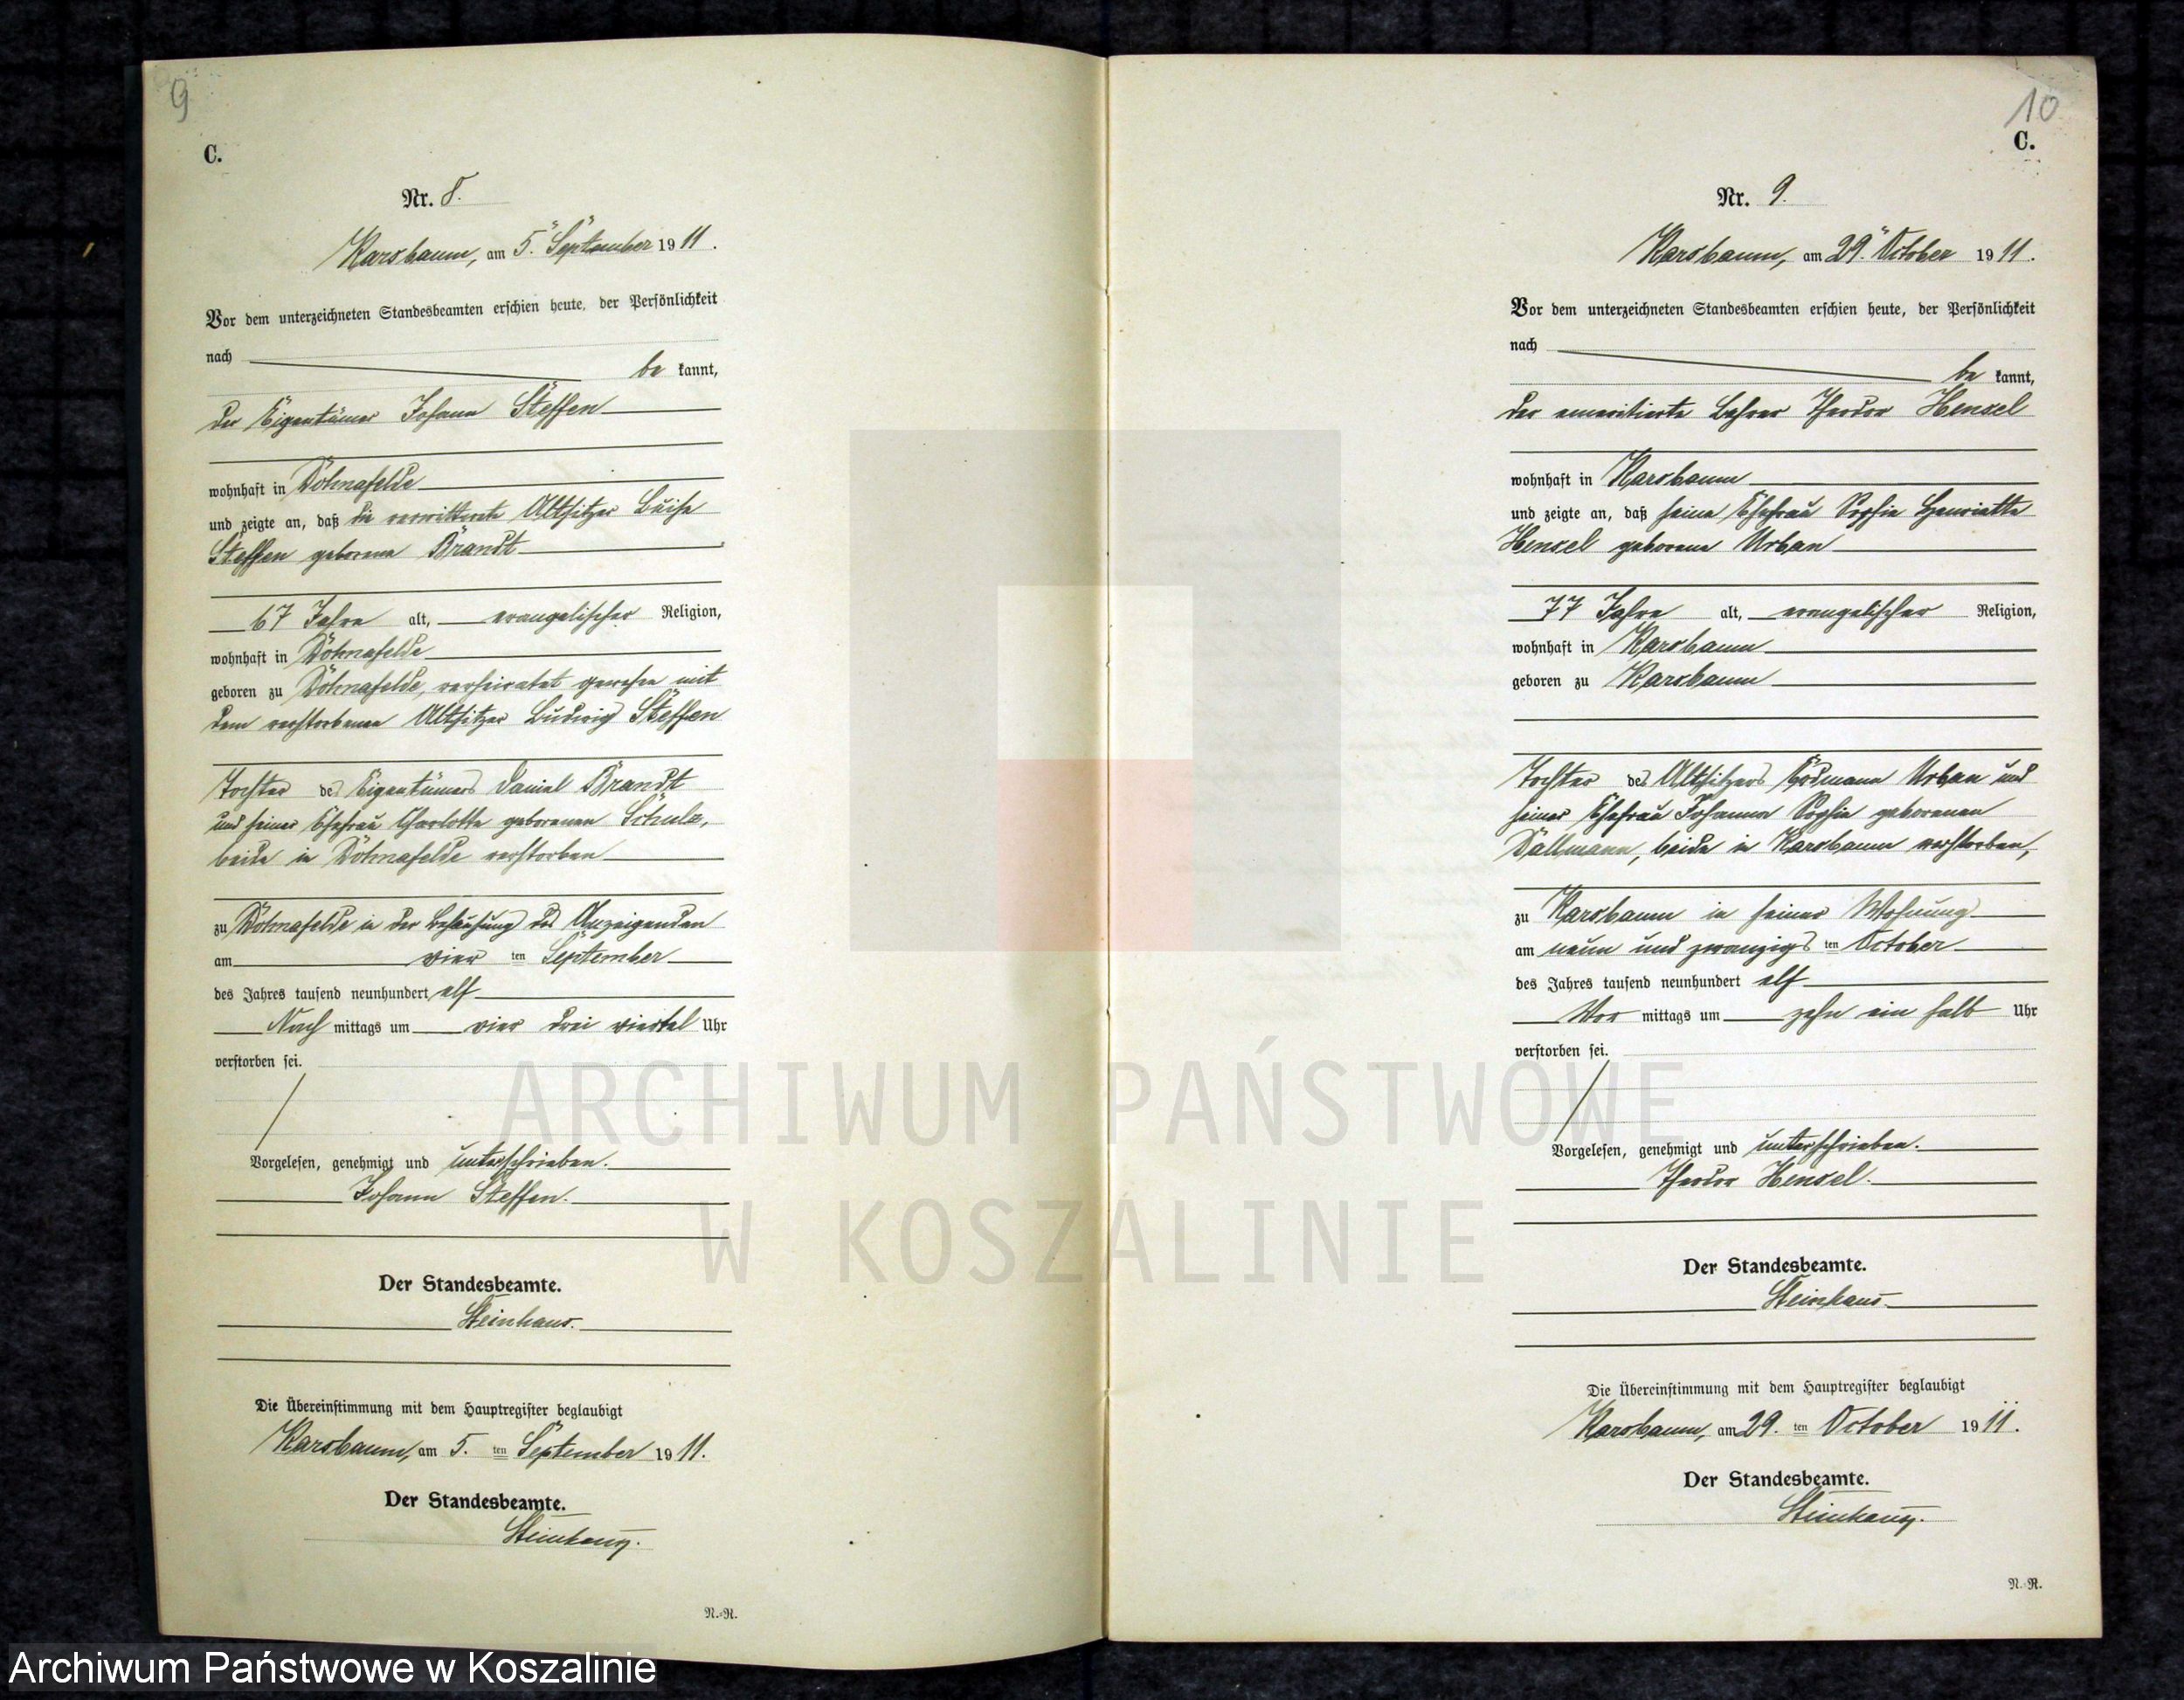 9
C.
Nr. 8.
Karsbaum, am 5. September 1911.
Vor dem unterzeichneten Standesbeamten erschien heute, der Persönlichkeit
nach
be kannt,
der Eigentümer Johann Steffen
wohnhaft in Döhnafelde
und zeigte an, daß die verwittwete Altsitzer Luise
Steffen geborene Brandt
67 Jahre alt, evangelischer Religion,
wohnhaft in Döhnafelde
geboren zu Döhnafelde, verheiratet gewesen mit
dem verstorbenen Altsitzer Ludwig Steffen
Tochter des Eigentümers Daniel Brandt
und seiner Ehefrau Charlotte geborenen Schulz,
beide in Döhnafelde verstorben
zu Döhnafelde in der Behausung des Anzeigenden
am vier ten September
des Jahres tausend neunhundert elf
Nach mittags um vier drei viertel Uhr
verstorben sei.
Vorgelesen, genehmigt und unterschrieben.
Johann Steffen.
Der Standesbeamte.
Steinhaus.
Die Übereinstimmung mit dem Hauptregister beglaubigt
Karsbaum, am 5. ten September 1911.
Der Standesbeamte.
Steinhaus.
N.-R.
10
C.
Nr. 9.
Karsbaum, am 29. October 1911.
Vor dem unterzeichneten Standesbeamten erschien heute, der Persönlichkeit
nach
be kannt,
der emeritierte Lehrer Theodor Hensel
wohnhaft in Karsbaum
und zeigte an, daß seine Ehefrau Sophie Henriette
Hensel geborene Urban
77 Jahre alt, evangelischer Religion,
wohnhaft in Karsbaum
geboren zu Karsbaum
Tochter des Altsitzers Erdmann Urban und
seiner Ehefrau Johanna Sophie geborenen
Dallmann, beide in Karsbaum verstorben,
zu Karsbaum in seiner Wohnung
am neun und zwanzigs ten October
des Jahres tausend neunhundert elf
Vor mittags um zehn ein halb Uhr
verstorben sei.
Vorgelesen, genehmigt und unterschrieben.
Theodor Hensel.
Der Standesbeamte.
Steinhaus.
Die Übereinstimmung mit dem Hauptregister beglaubigt
Karsbaum, am 29. ten October 1911.
Der Standesbeamte.
Steinhaus.
N.-R.
ARCHIWUM PAŃSTWOWE
W KOSZALINIE
Archiwum Państwowe w Koszalinie